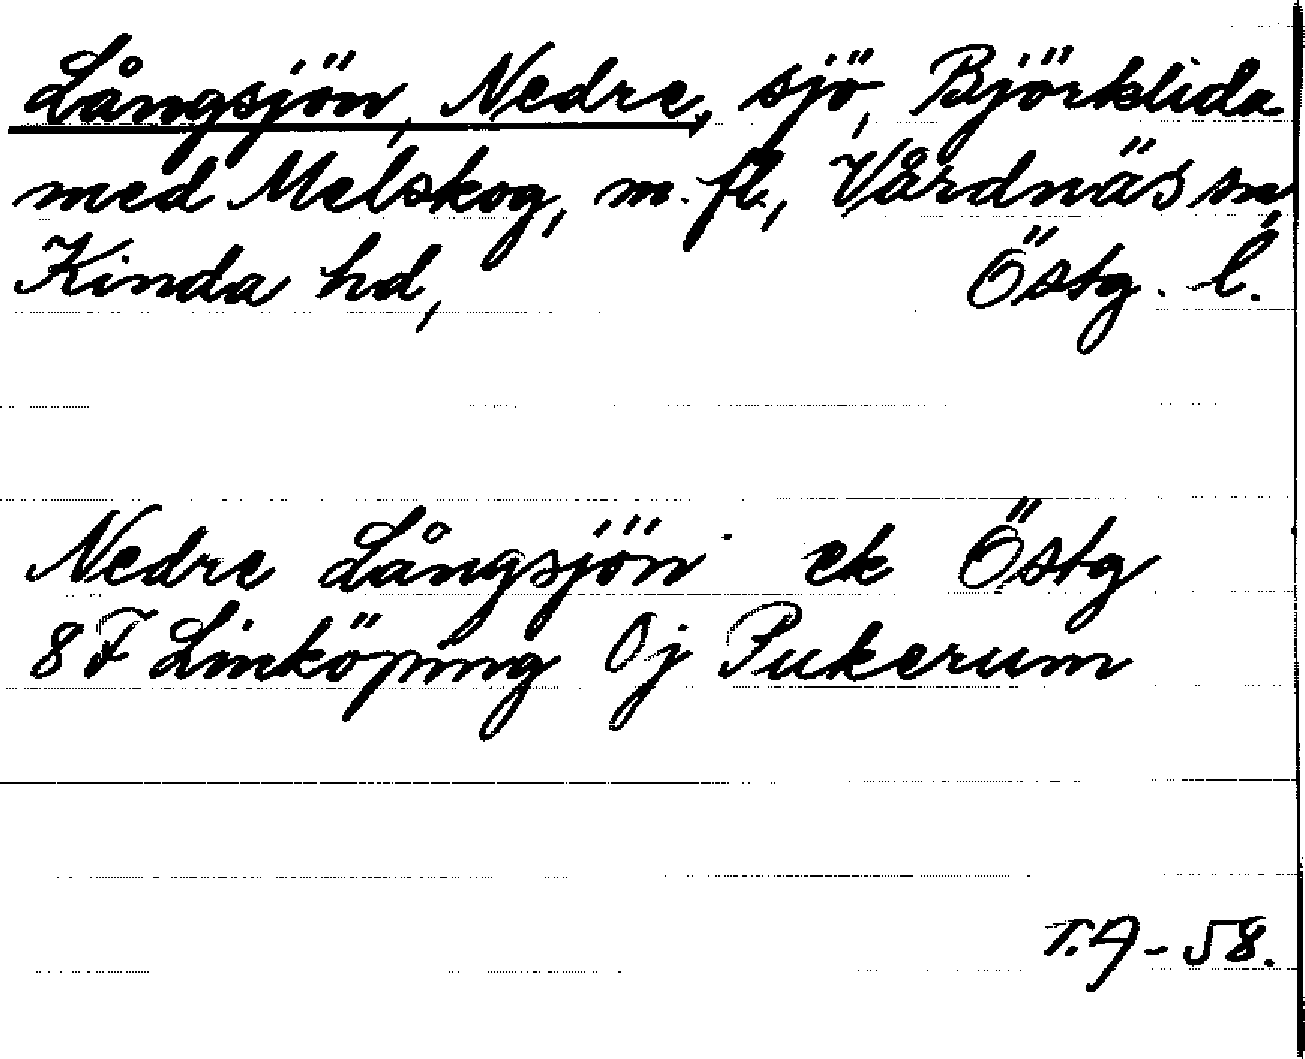 Långsjön, Nedre, sjö, Björklida
med Melskog, m. fl., Vårdnäs sn,
Kinda hd, Östg. l.
Nedre Långsjön ek Östg
8F Linköping Oj Pukerum
T.A-58.